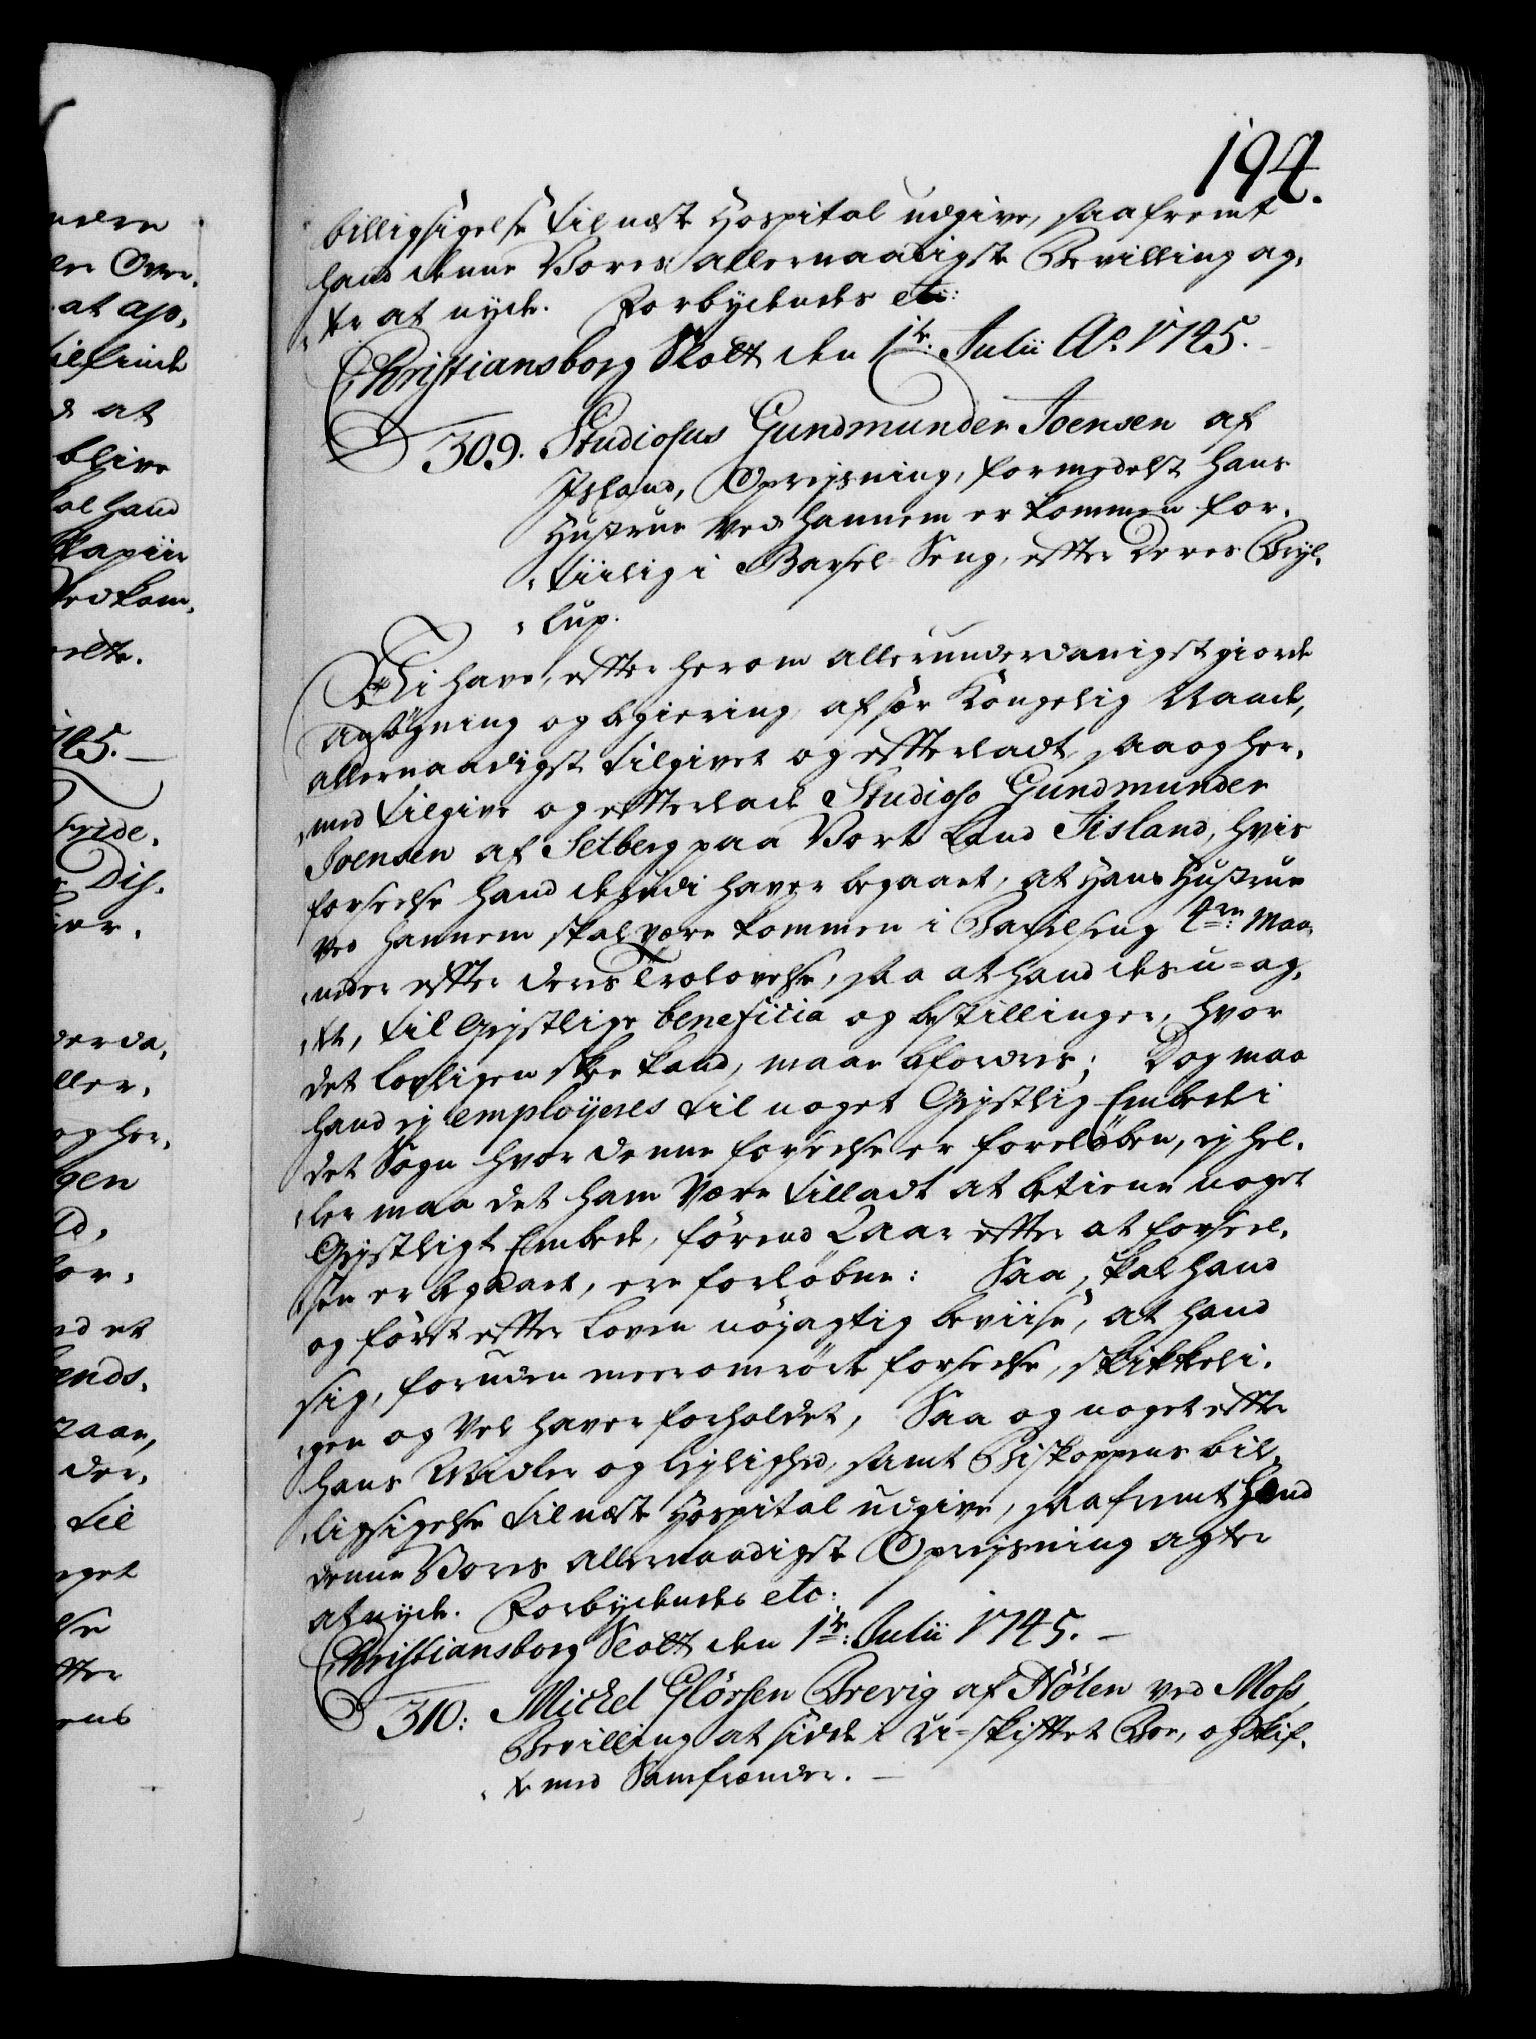 194.
billigsigelse til næste Hospital udgive, saafremt
hand denne Vores allernaadigste Bevilling ag,
,ter at nyde. Forbydendes etc:
Christiansborg Slott den 1te Julii Ao 1745.
309. Studiosus Gundmunder Joensen af
Island, Opreysning, formedelst hans
Hustrue ved hannem er kommen for,
,tiilig i Barsel-Seng, efter deres Bryl,
,lup.
Vi have, efter herom allerunderdanigst giorde
Ansøgning og begiering, af sær Kongelig Naade,
allernaadigst tilgivet og efterladt, saa og her,
,med tilgive og efterlade Studioso Gundmunder
Joensen af Setberg paa Vort Land Iisland, hvis
forseelse hand derudi haver begaaet, at Hans Hustrue
ved hannem skal være kommen i Barselseng 4re Maa,
,neder efter deres Trolovelse, saa at hand des u-ag,
,tet, til Geystlige beneficia og bestillinger, hvor
det lovligen skee kand, maae befordres; Dog maa
hand ey employeres til noget Geystlig Embede i
det Sogn hvor denne forseelse er foreløben, ey hel,
,ler maa det ham være tilladt at betiene noget
Geystligt Embede, førend 2 aar efter at forseel,
,sen er begaaet, ere forløbne: Saa skal hand
og først efter Loven nøjagtig beviise, at hand
sig, foruden meeromrørte forseelse, skikkeli,
,gen og vel haver forholdet, Saa og noget efter
hans Midler og leylighed, samt Biskoppens bil,
,ligsigelse til næste Hospital udgive, saafremt hand
denne Vores allernaadigste Opreysning agter
at nyde. Forbydendes etc:
Christiansborg Slott den 1te: Julii 1745.
310: Michel Glørsen Brevig af Hølen ved Moss,
Bevilling at sidde i U-skiftet Boe, og skif,
,te med Samfrænder.